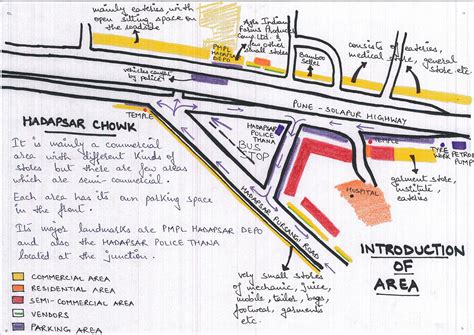 mainly eateries with
open sitting space on
the roadside
PMPL
HADAPSAR
DEPO
Asha Indian
Farms Produce
Comp. Ltd. &
few other
small stores
Bamboo
Seller
consists of eateries,
medical store, general
store etc.
vehicles caught
by police
PUNE - SOLAPUR HIGHWAY
TEMPLE
HADAPSAR
POLICE
THANA
BUS
STOP
TEMPLE
TYRE
WORK
PETROL
PUMP
HADAPSAR CHOWK
It is mainly a commercial
area with different kinds of
stores but there are few areas
which are semi-commercial.
Each area has its own parking space
in the front.
Its major landmarks are PMPL HADAPSAR DEPO
and also the HADAPSAR POLICE THANA
located at the junction.
HADAPSAR FURSANGI ROAD
HOSPITAL
garment store,
institute,
eateries
COMMERCIAL AREA
RESIDENTIAL AREA
SEMI-COMMERCIAL AREA
VENDORS
PARKING AREA
very small stores
of mechanic, juice,
mobile, tailor, bags,
footwear, garments
etc.
INTRODUCTION
OF
AREA